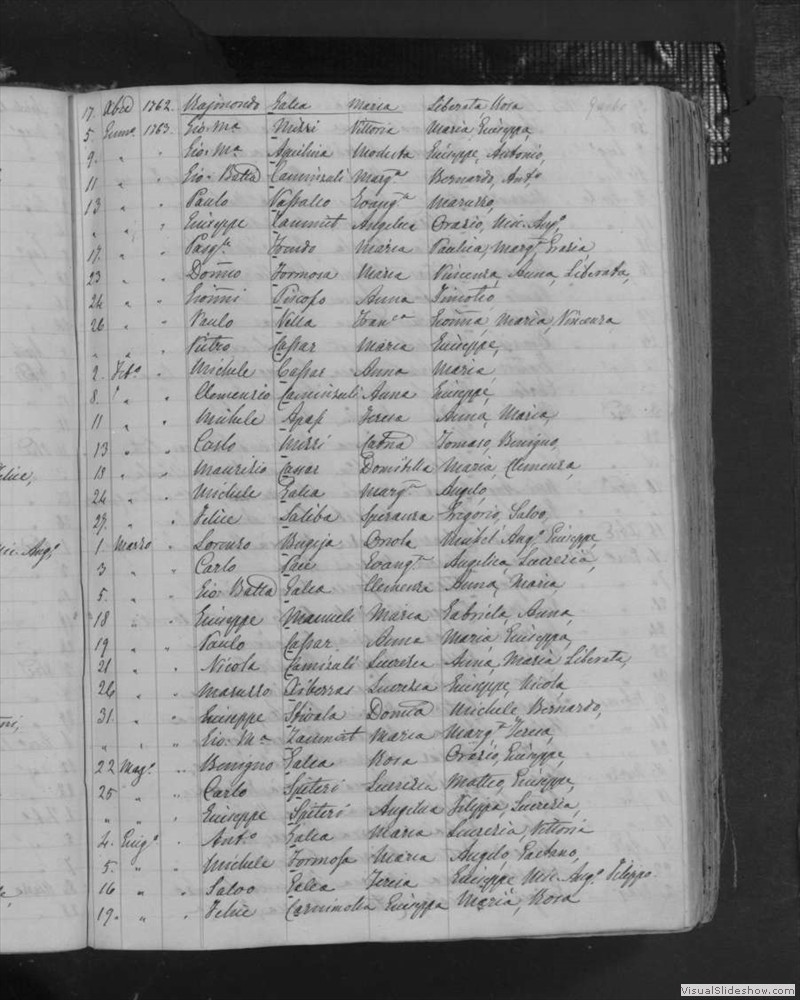 17. Xbre 1762. Rajmondo Galea Maria Liberata Rosa
5. Genn.o 1763. Gio: Ma Mizzi Vittoria Maria Giuseppa,
9. " " Gio: Ma Aquilina Modesta Giuseppe, Antonio,
11 " " Gio: Batta Caminzuli Marg.a Bernardo, Ant.o
13 " " Paulo Vassallo Evang.a Maruzzo,
" " " Giuseppe Zammit Angelica Orazio, Mic: Ang.o
17. " " Pasq.le Maria Paulica, Marg.a Grazia
23 " " Dom.co Formosa Maria Vincenza, Anna, Liberata,
24 " " Gio:nni Piscopo Anna Timoteo
26 " " Paulo Vella Fran.ca Gio:nna, Maria, Vincenza
" " " Pietro Cassar Maria Giuseppe,
2. Feb.o " Michele Cassar Anna Maria
8. " " Clemenzio Caminzuli Anna Giuseppe
11 " " Michele Apap Teresa Anna, Maria,
13 " " Carlo Mizzi Cat.na Tomaso, Benigno,
13 " " Maurizio Cassar Domitilla Maria, Clemenza,
24 " " Michele Galea Marg.a Angelo,
27. " " Felice Saliba Speranza Gregorio, Salvo,
1. Marzo " Lorenzo Bugeja Orsola Michel' Ang.o Giuseppe,
3 " " Carlo Pace Evang.a Angelica, Lucrezia,
5. " " Gio: Batta Galea Clemenza Anna, Maria
18 " " Giuseppe Mamueli Maria Gabriela, Anna,
19 " " Paulo Cassar Anna Maria Giuseppa,
21 " " Nicola Camizuli Lucrezia Anna, Maria Liberata,
26 " " Maruzzo Xiberras Lucrezia Giuseppe, Nicola
31. " " Giuseppe Stivala Dom.ca Michele Bernardo,
" " " Gio: Ma Zammit Maria Marg.a Teresa,
22 Mag.o " Benigno Galea Rosa Orazio, Giuseppe,
25 " " Carlo Spiteri Lucrezia Matteo, Giuseppe,
" " " Giuseppe Spiteri Angelica Filippa, Lucrezia,
4. Giug.o " Ant.o Galea Maria Lucrezia, Vittoria
5. " " Michele Formosa Maria Angelo, Gaetano,
16 " " Salvo Galea Teresa Giuseppe Mic. Ang.o Filippo
19. " " Felice Giuseppa Maria, Rosa
VisualSlideshow.com